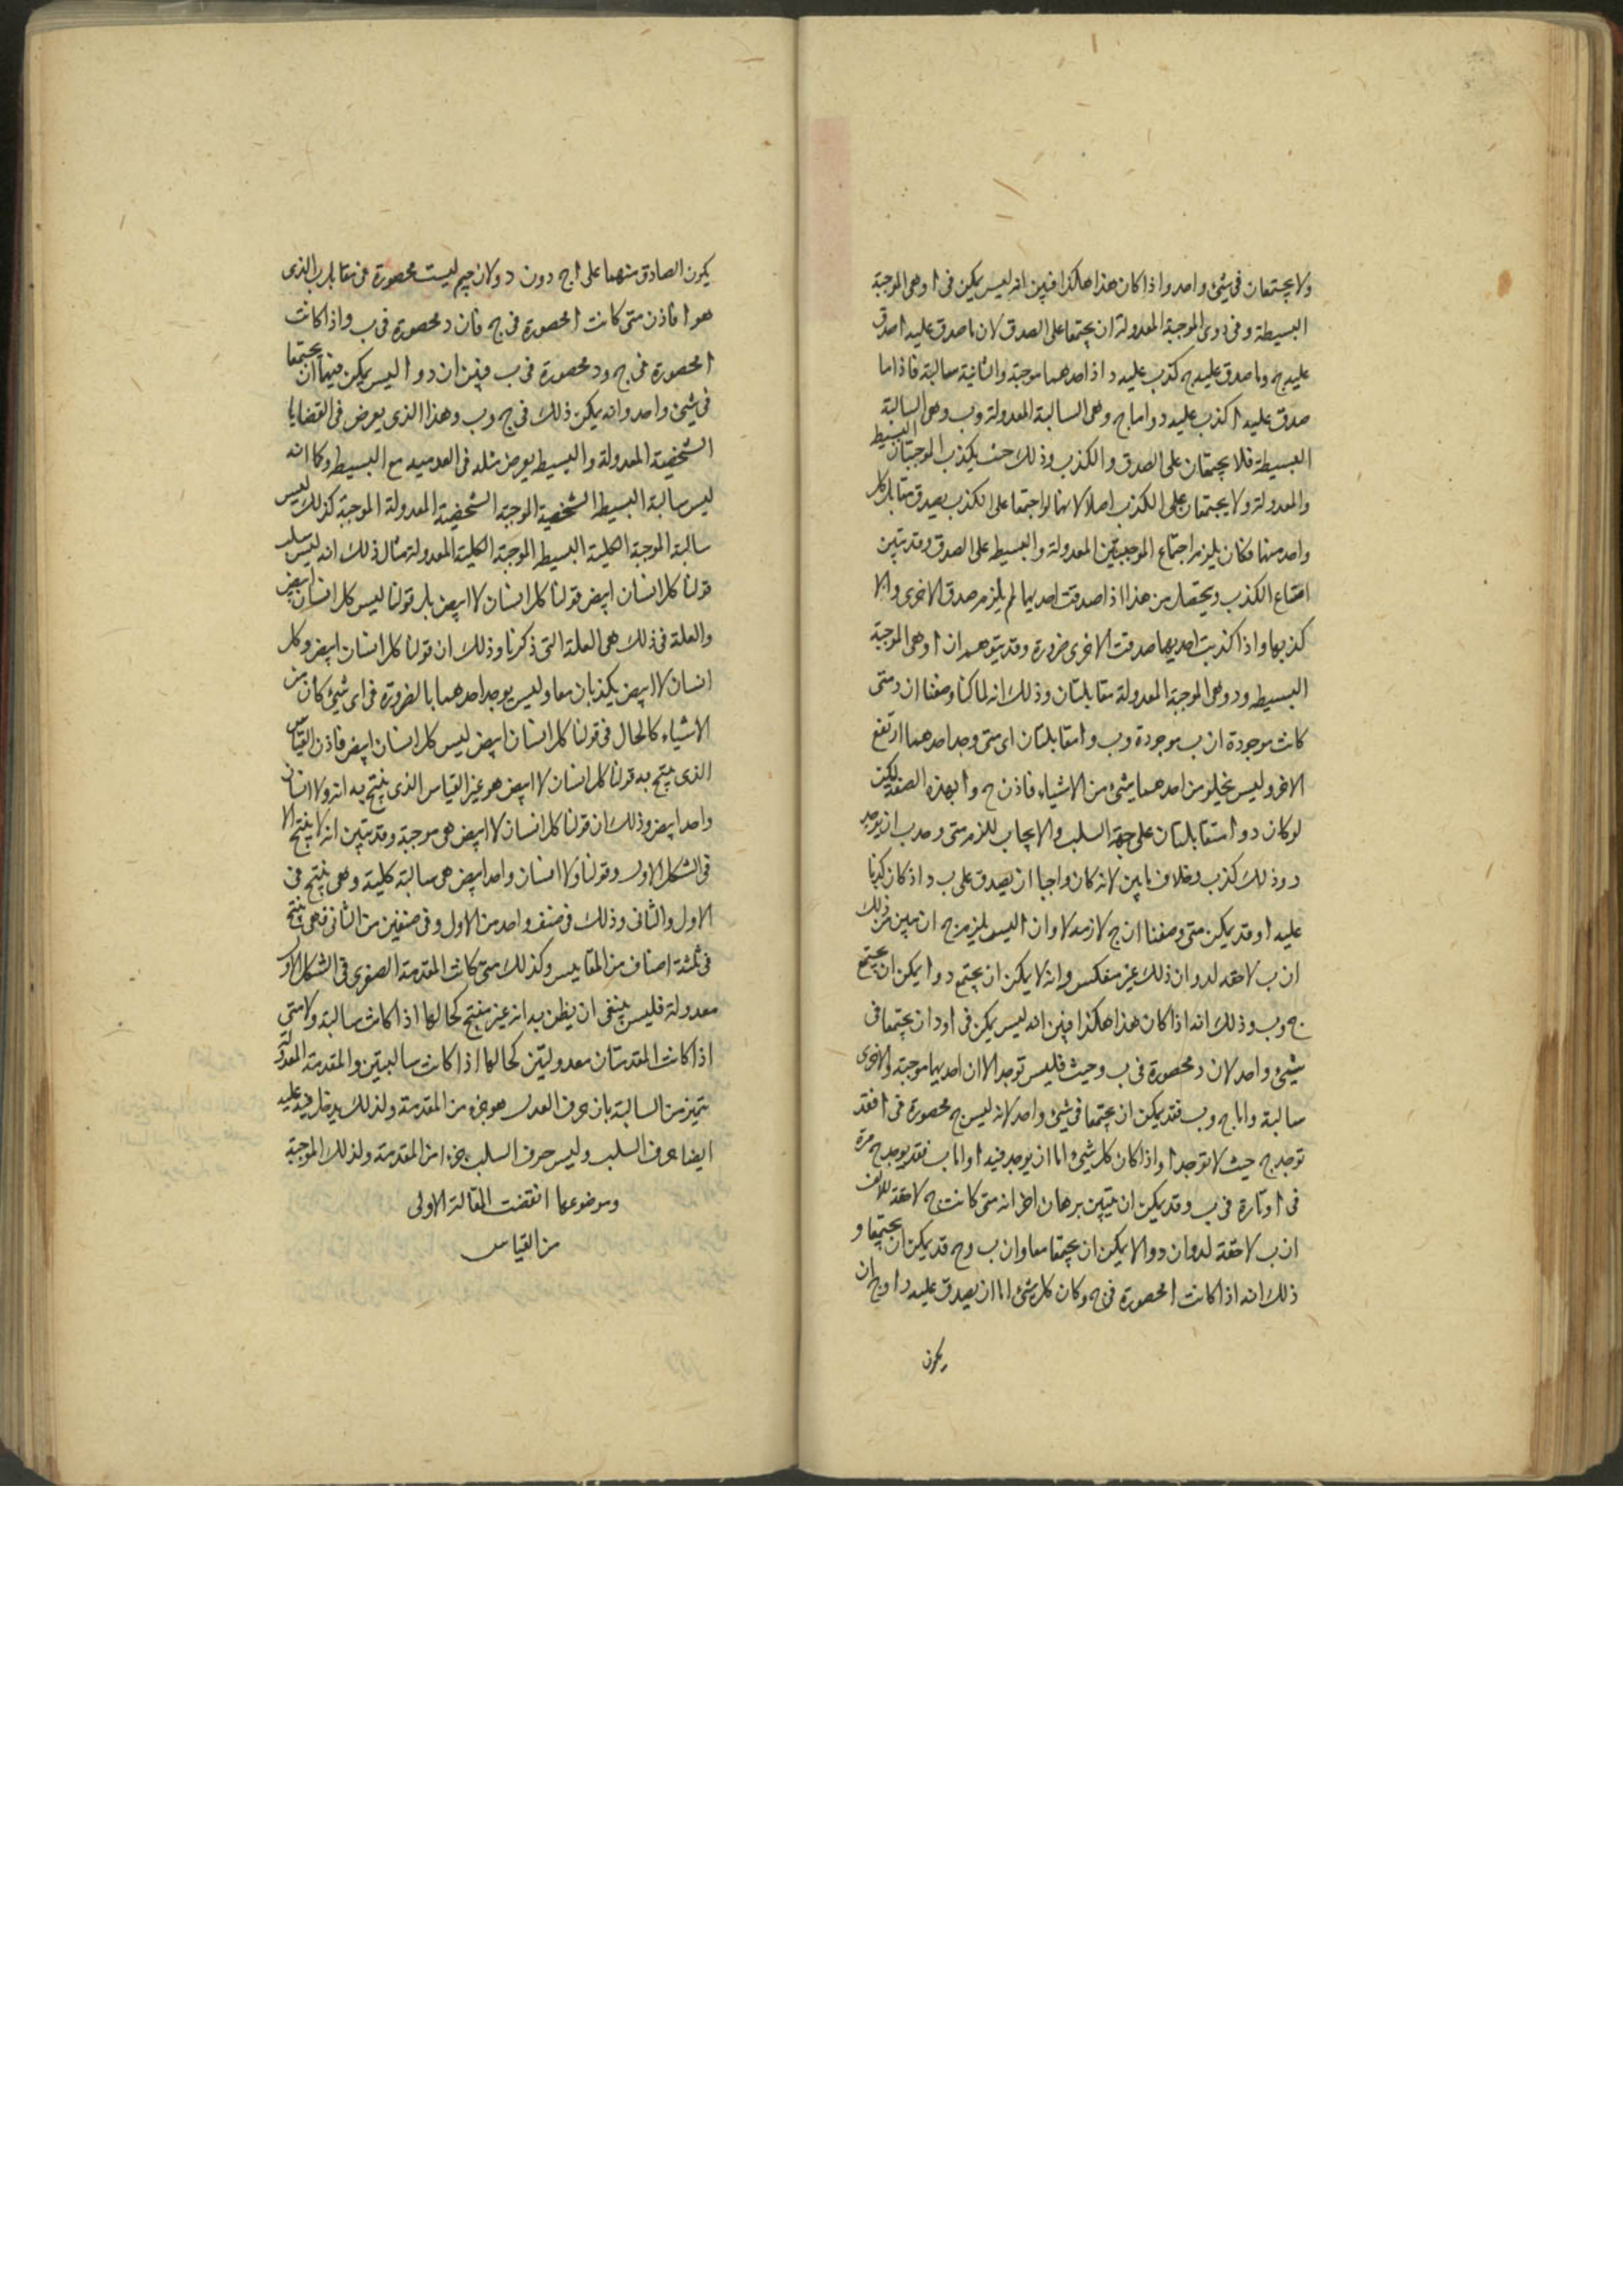 ولا يجتمعان فى شئ واحد واذا كان هذا هكذا فبين انه ليس يمكن فى ا وهى الموجبة
البسيطة وفى د وهى الموجبة المعدولة ان يجتمعا على الصدق لان ما صدق عليه ا صدق
عليه ج وما صدق عليه ج كذب عليه د اذ احدهما موجبة والثانية سالبة فاذا ما
صدق عليه ا كذب عليه د واما ج وهى السالبة المعدولة وب وهى السالبة
البسيطة فلا يجتمعان على الصدق والكذب وذلك حيث يكذب الموجبتان البسيطة
والمعدولة ولا يجتمعان على الكذب اصلا لانهما لو اجتمعا على الكذب يصدق مقابل كل
واحد منهما فكان يلزم اجتماع الموجبتين المعدولة والبسيطة على الصدق وقد تبين
امتناع الكذب ويحصل من هذا اذا صدقت احديهما لم يلزم صدق الاخرى ولا
كذبها واذا كذبت احديهما صدقت الاخرى ضرورة وقد يتوهم ان ا وهى الموجبة
البسيطة ود وهى الموجبة المعدولة متقابلتان وذلك انه لما كنا وصفنا ان د متى
كانت موجودة ان ب موجودة وب وا متقابلتان اى متى وجد احدهما ارتفع
الاخر وليس يخلو من احدهما شئ من الاشياء فاذن ج وا بهذه الصفة لكن
لو كان د وا متقابلتان على جهة السلب والايجاب للزم متى وجد ب ان يوجد
د وذلك كذب وخلاف ما بين لانه كان واجبا ان يصدق على ب د اذ كان كذبنا
عليه ا وقد يمكن متى وصفنا ان ج لازمة لا وان ا ليس يلزم ج ان نبين من ذلك
ان ب لاحقه لد وان ذلك غير منعكس وانه لا يمكن ان يجتمع د وا يمكن ان يجتمع
ج وب وذلك انه اذا كان هذا هكذا فبين انه ليس يمكن فى ا ود ان يجتمعا فى
شئ واحد لان د محصورة فى ب وحيث فليس توجد ا لان احديهما موجبة والاخرى
سالبة واما ج وب فقد يمكن ان يجتمعا فى شئ واحد لانه ليس ج محصورة فى ا فقد
توجد ج حيث لا توجد ا واذا كان كل شئ اما ان يوجد فيه ا واما ب فقد يوجد ج مرة
فى ا وتارة فى ب وقد يمكن ان يتبين ببرهان اخر انه متى كانت ج لاحقة للالف
ان ب لاحقة لد وان د وا لا يمكن ان يجتمعا معا وان ب وج قد يمكن ان يجتمعا و
ذلك انه اذا كانت ا محصورة فى ج وكان كل شئ اما ان يصدق عليه د او ج ان
يكون
يكون الصادق منهما على ا ج دون د ولان جيم ليست محصورة فى مقابل ب الذى
هو ا فاذن متى كانت ا محصورة فى ج فان د محصورة فى ب واذا كانت
ا محصورة فى ج ود محصورة فى ب فبين ان د وا ليس يمكن فيهما ان يجتمعا
فى شئ واحد وانه يمكن ذلك فى ج وب وهذا الذى يعرض فى القضايا
الشخصية المعدولة والبسيط يعرض مثله فى العدميه مع البسيط وكما انه
ليس سالبة البسيط الشخصية الموجبة الشخصية المعدولة الموجبة كذلك ليس
سالبة الموجبة الكلية البسيط الموجبة الكلية المعدولة مثال ذلك انه ليس سلب
قولنا كل انسان ابيض قولنا كل انسان لا ابيض بل قولنا ليس كل انسان ابيض
والعلة فى ذلك هى العلة التى ذكرنا وذلك ان قولنا كل انسان ابيض وكل
انسان لا ابيض يكذبان معا وليس يوجد احدهما بالضرورة فى اى شئ كان من
الاشياء كالحال فى قولنا كل انسان ابيض ليس كل انسان ابيض فاذن القياس
الذى ينتج به قولنا كل انسان لا ابيض هو غير القياس الذى ينتج به انه ولا انسان
واحد ابيض وذلك ان قولنا كل انسان لا ابيض هى موجبة وقد تبين انه لا ينتج الا
فى الشكل الاول وقولنا ولا انسان واحد ابيض هى سالبة كلية وهى ينتج فى
الاول والثانى وذلك فى صنف واحد من الاول وفى صنفين من الثانى فهى ينتج
فى ثلثة اصناف من المقاييس وكذلك متى كانت المقدمة الصغرى فى الشكل الاول
معدولة فليس ينبغى ان يظن به انه غير منتج كحالها اذا كانت سالبة ولا متى
اذا كانت المقدمتان معدوليتين كحالها اذا كانت سالبتين والمقدمة المعدولة
يتميز من السالبة بان حرف العدل هو جزء من المقدمة ولذلك يدخل فيه عليه
ايضا حرف السلب وليس حرف السلب جزءا من المقدمة ولذلك الموجبة
وموضوعها انقضت المقالة الاولى
من القياس